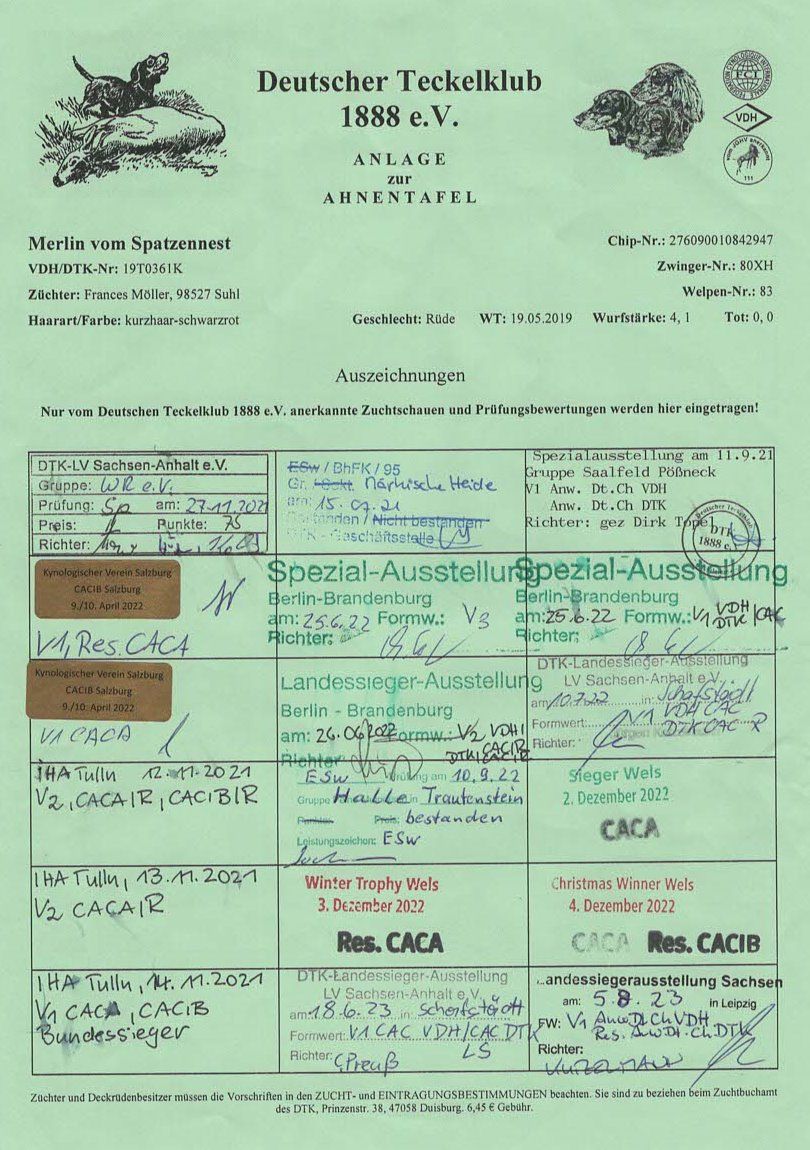 Deutscher Teckelklub
1888 e.V.
ANLAGE
zur
AHNENTAFEL
FCI
VDH
vom JGHV anerkannt
111
Merlin vom Spatzennest
VDH/DTK-Nr: 19T0361K
Züchter: Frances Möller, 98527 Suhl
Haarart/Farbe: kurzhaar-schwarzrot
Chip-Nr.: 276090010842947
Zwinger-Nr.: 80XH
Welpen-Nr.: 83
Geschlecht: Rüde WT: 19.05.2019 Wurfstärke: 4, 1 Tot: 0, 0
Auszeichnungen
Nur vom Deutschen Teckelklub 1888 e.V. anerkannte Zuchtschauen und Prüfungsbewertungen werden hier eingetragen!
DTK-LV Sachsen-Anhalt e.V.
Gruppe: WR e.V.
Prüfung: Sp am: 27.11.2021
Preis: Punkte: 75
Richter:
ESw / BhFK / 95
Gr. Märkische Heide
am: 15.07.21
bestanden / Nicht bestanden
DTK - Geschäftsstelle
Spezialausstellung am 11.9.21
Gruppe Saalfeld Pößneck
V1 Anw. Dt.Ch VDH
Anw. Dt.Ch DTK
Richter: gez Dirk Topel
DTK
1888 e.V.
Kynologischer Verein Salzburg
CACIB Salzburg
9./10. April 2022
V1, Res. CACA
Spezial-Ausstellung
Berlin-Brandenburg
am: 25.6.22 Formw.: V3
Richter:
Spezial-Ausstellung
Berlin-Brandenburg
am: 25.6.22 Formw.: V1 VDH DTK / CAC
Richter:
Kynologischer Verein Salzburg
CACIB Salzburg
9./10. April 2022
V1 CACA
Landessieger-Ausstellung
Berlin - Brandenburg
am: 26.06.2022 Formw.: V2 VDH/
DTK CAC/R
Richter
DTK-Landessieger-Ausstellung
LV Sachsen-Anhalt e.V.
am 10.7.22 in Schafstädt
Formwert: V1 VDH CAC
DTK CAC R
Richter:
IHA Tulln 12.11.2021
V2, CACA/R, CACIB/R
ESw Prüfung am 10.9.22
Gruppe Halle in Trautenstein
Punkte: Preis: bestanden
Leistungszeichen: ESw
Sieger Wels
2. Dezember 2022
CACA
IHA Tulln, 13.11.2021
V2 CACA/R
Winter Trophy Wels
3. Dezember 2022
Res. CACA
Christmas Winner Wels
4. Dezember 2022
CACA Res. CACIB
IHA Tulln, 14.11.2021
V1 CACA, CACIB
Bundessieger
DTK-Landessieger-Ausstellung
LV Sachsen-Anhalt e.V.
am 18.6.23 in Schafstädt
Formwert: V1 CAC VDH/CAC DTK
LS
Richter: C. Preuß
Landessiegerausstellung Sachsen
am: 5.8.23 in Leipzig
FW: V1 Anw Dt. Ch VDH
Res. Anw Dt. Ch. DTK
Richter:
Züchter und Deckrüdenbesitzer müssen die Vorschriften in den ZUCHT- und EINTRAGUNGSBESTIMMUNGEN beachten. Sie sind zu beziehen beim Zuchtbuchamt
des DTK, Prinzenstr. 38, 47058 Duisburg. 6,45 € Gebühr.